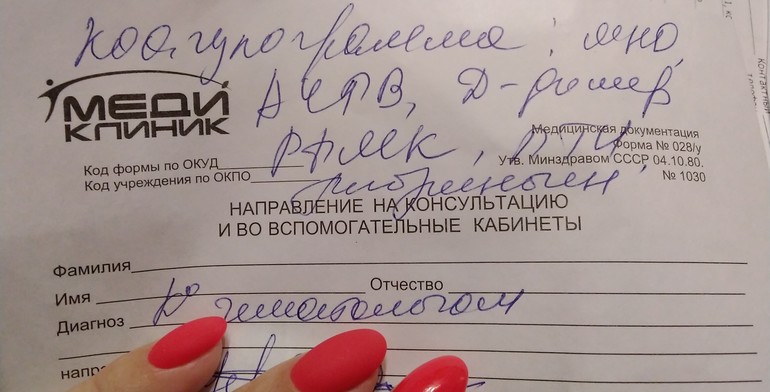 Коагулограмма: мно,
АЧТВ, Д-димер,
РФМК, ПТИ
фибриноген
МЕДИ
КЛИНИК
Медицинская документация
Форма № 028/у
Утв. Минздравом СССР 04.10.80.
№ 1030
Код формы по ОКУД
Код учреждения по ОКПО
НАПРАВЛЕНИЕ НА КОНСУЛЬТАЦИЮ
И ВО ВСПОМОГАТЕЛЬНЫЕ КАБИНЕТЫ
Фамилия
Имя Отчество
Диагноз
напра